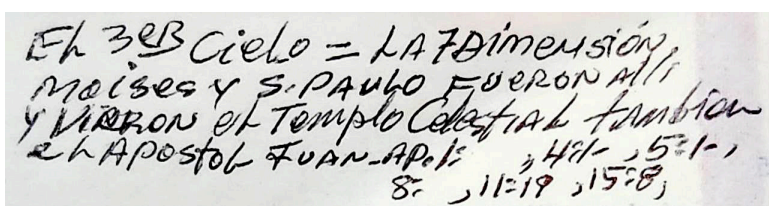 EL 3eB Cielo = LA 7 Dimensión,
Moises y S. PAULO FUERON Alli
y VIERON el Templo Celestial tambien
el APostol JUAN-AP. 1: , 4:1- , 5:1-,
8: , 11:19 , 15:8,